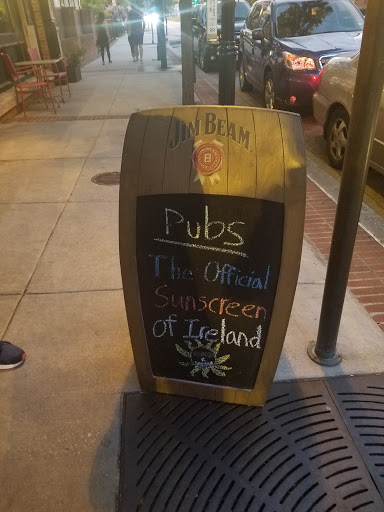 JIM BEAM
Pubs
The Official
Sunscreen
of Ireland